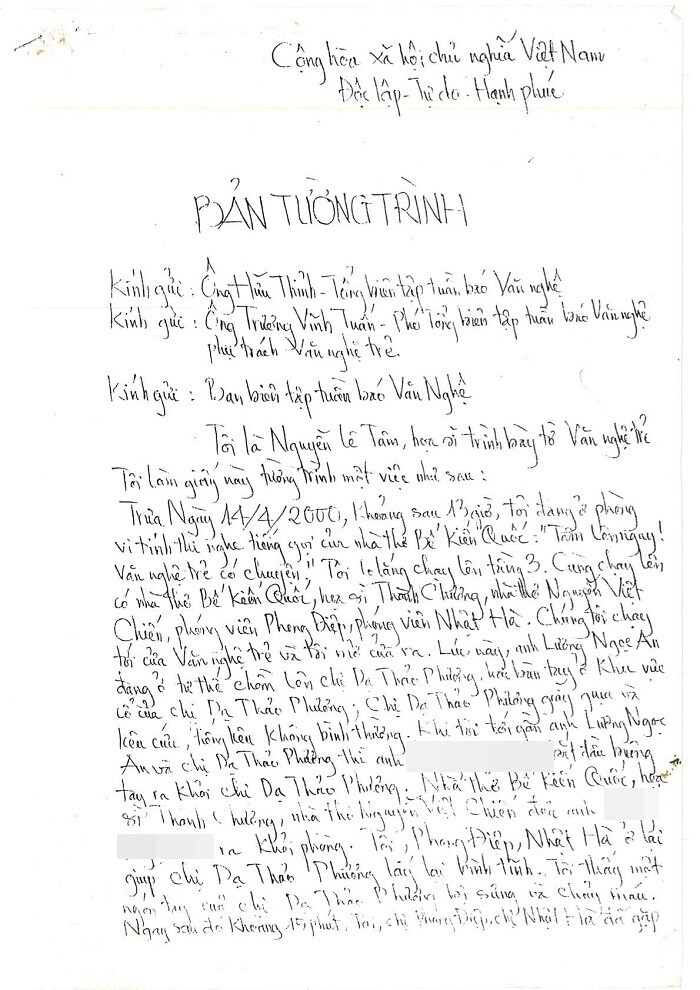 Cộng hòa xã hội chủ nghĩa Việt Nam
Độc lập - Tự do - Hạnh phúc
BẢN TƯỜNG TRÌNH
Kính gửi : Ông Hữu Thỉnh - Tổng biên tập tuần báo Văn nghệ
Kính gửi : Ông Trương Vĩnh Tuấn - Phó Tổng biên tập tuần báo Văn nghệ
phụ trách Văn nghệ trẻ.
Kính gửi : Ban biên tập tuần báo Văn Nghệ
Tôi là Nguyễn Lê Tâm, họa sĩ trình bày tờ Văn nghệ trẻ
Tôi làm giấy này tường trình một việc như sau :
Trưa Ngày 14/4/2000, khoảng sau 13 giờ, tôi đang ở phòng
vi tính thì nghe tiếng gọi của nhà thơ Bế Kiến Quốc : "Tâm lên ngay!
Văn nghệ trẻ có chuyện!" Tôi lo lắng chạy lên tầng 3. Cùng chạy lên
có nhà thơ Bế Kiến Quốc, họa sĩ Thành Chương, nhà thơ Nguyễn Việt
Chiến, phóng viên Phong Điệp, phóng viên Nhật Hà. Chúng tôi chạy
tới cửa Văn nghệ trẻ và tôi mở cửa ra. Lúc này, anh Lương Ngọc An
đang ở tư thế chồm lên chị Dạ Thảo Phương, hai bàn tay ở khu vực
cổ của chị Dạ Thảo Phương; Chị Dạ Thảo Phương giãy giụa và
kêu cứu, tiếng kêu không bình thường. Khi tôi tới gần anh Lương Ngọc
An và chị Dạ Thảo Phương thì anh bắt đầu buông
tay ra khỏi chị Dạ Thảo Phương. Nhà thơ Bế Kiến Quốc, họa
sĩ Thành Chương, nhà thơ Nguyễn Việt Chiến đưa anh
ra khỏi phòng. Tôi, Phong Điệp, Nhật Hà ở lại
giúp chị Dạ Thảo Phương lấy lại bình tĩnh. Tôi thấy một
ngón tay của chị Dạ Thảo Phương bị sưng và chảy máu.
Ngay sau đó khoảng 15 phút, Tôi, chị Phong Điệp, chị Nhật Hà đã gặp